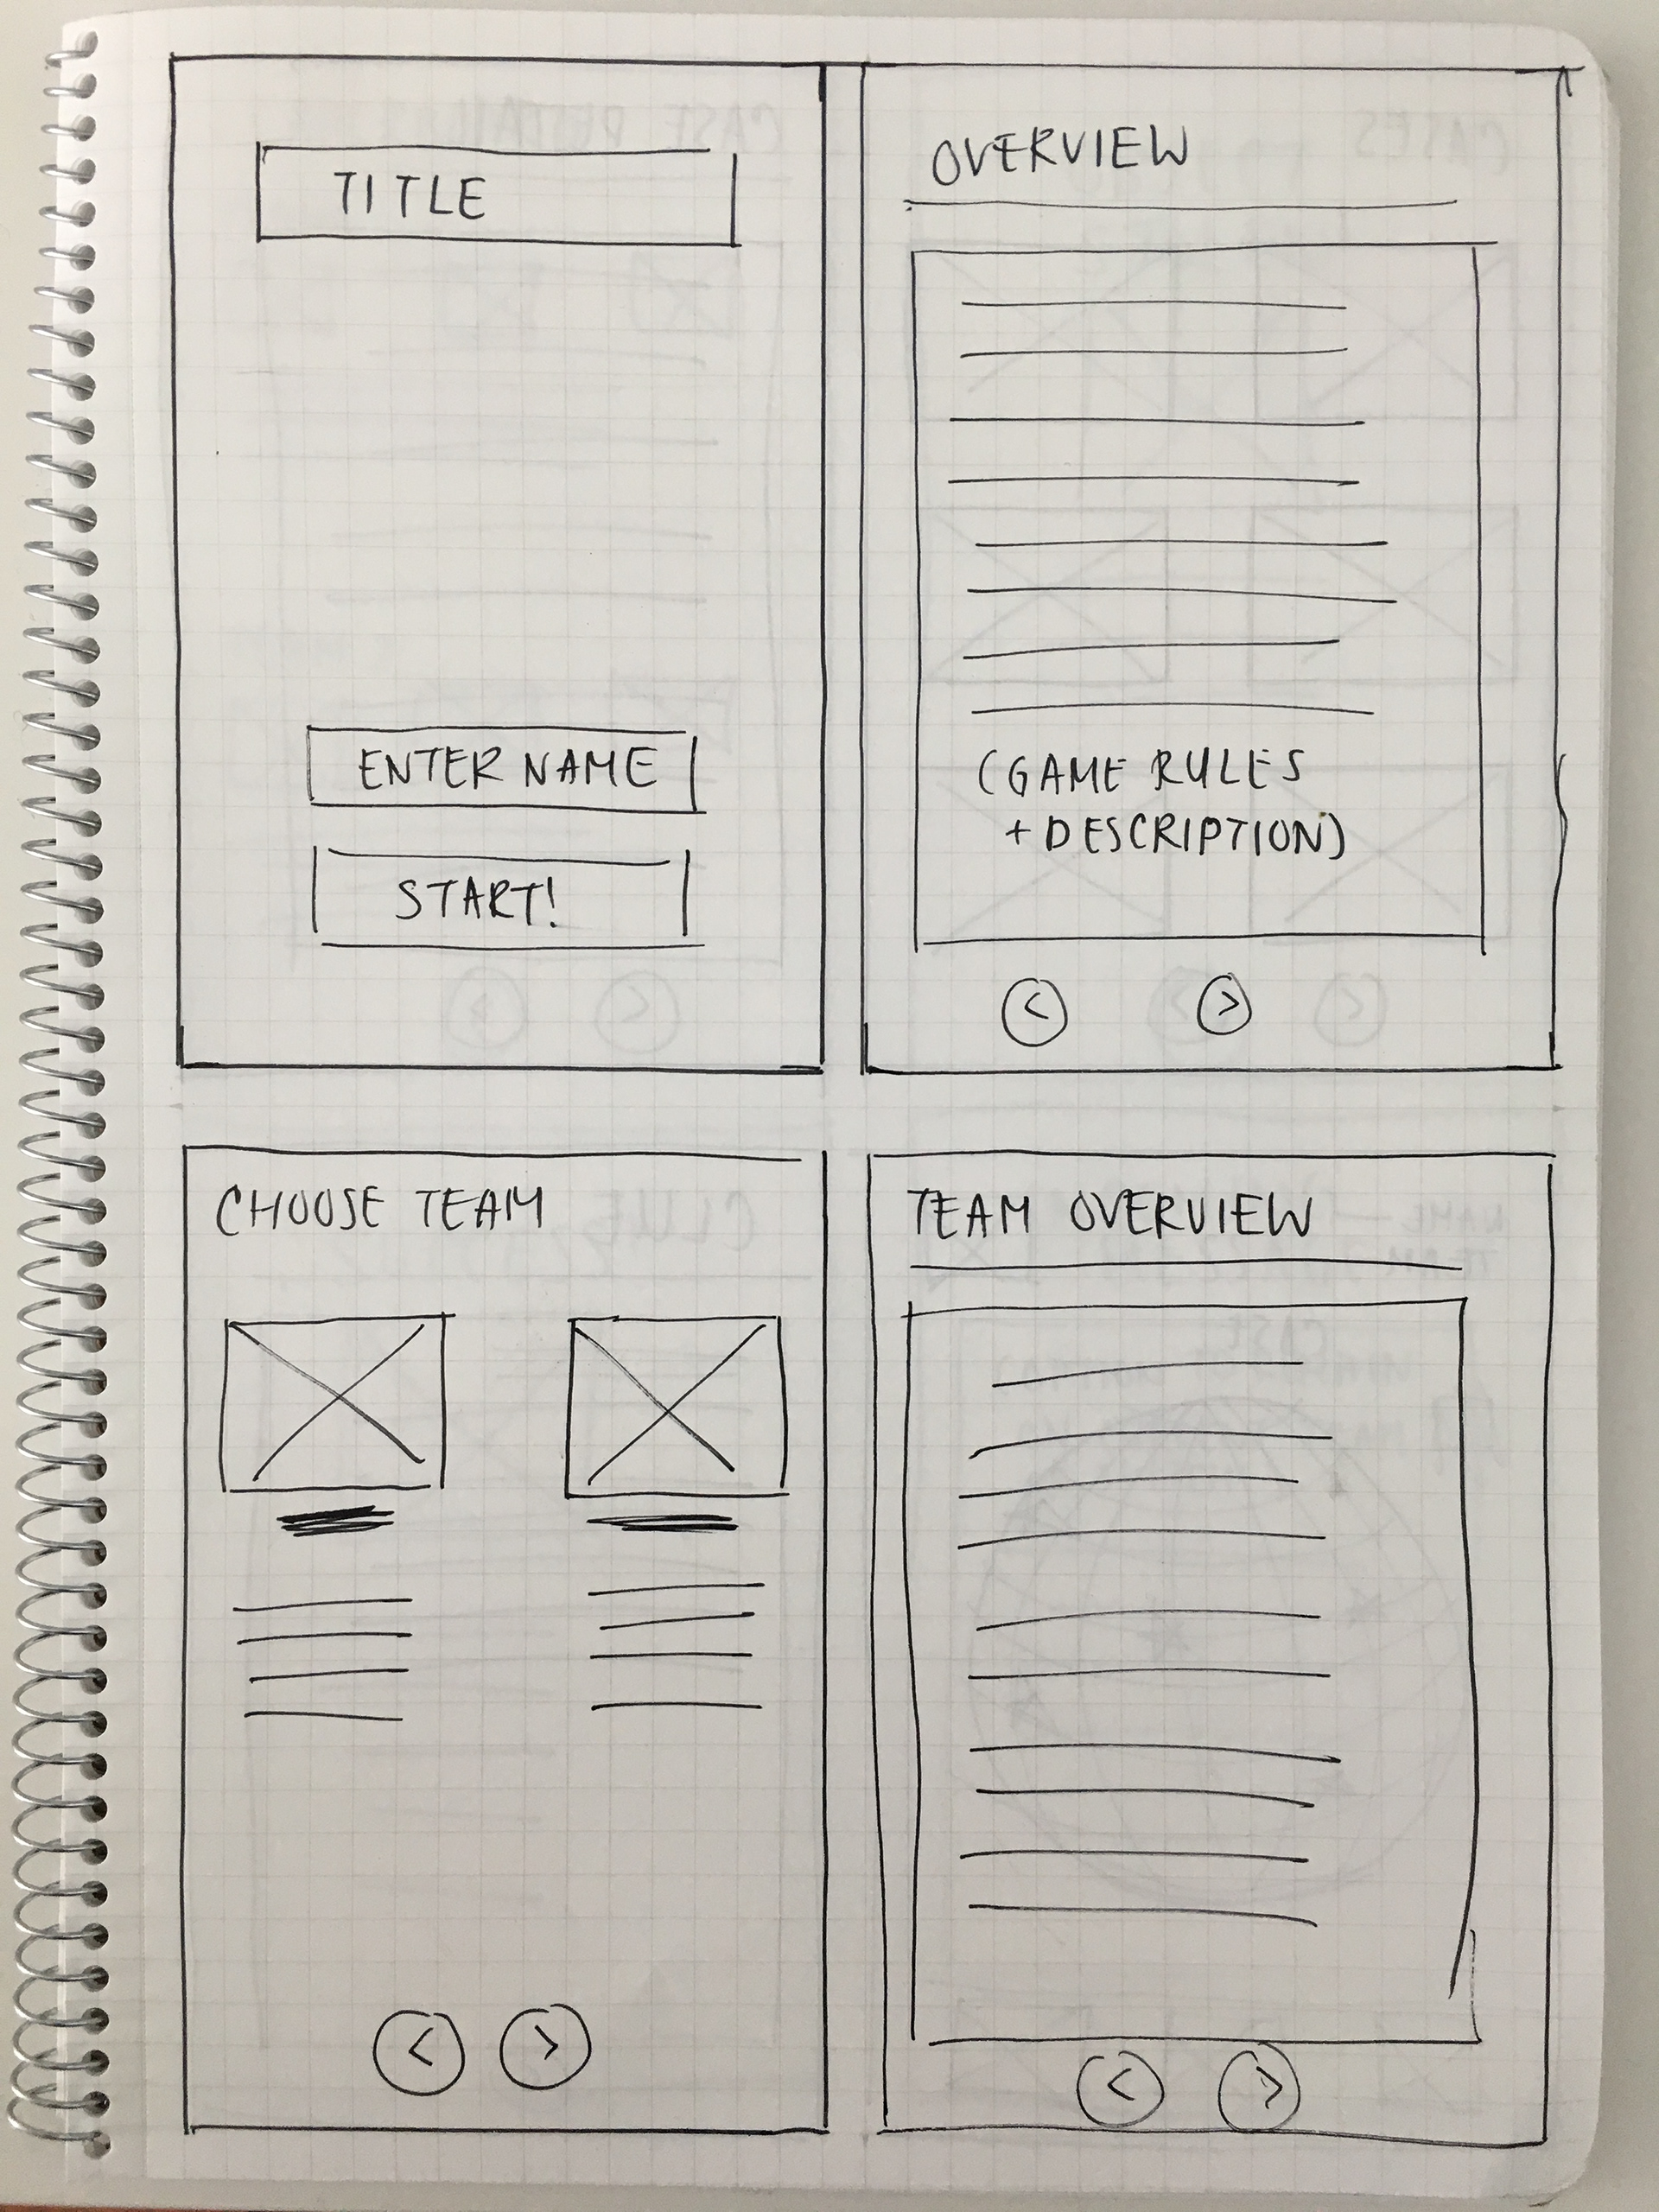 TITLE
ENTER NAME
START!
OVERVIEW
(GAME RULES
+ DESCRIPTION)
<
>
CHOOSE TEAM
<
>
TEAM OVERVIEW
<
>